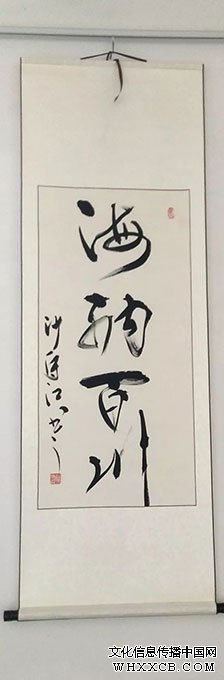 海纳百川
文化信息传播中国网
WHXXCB.COM